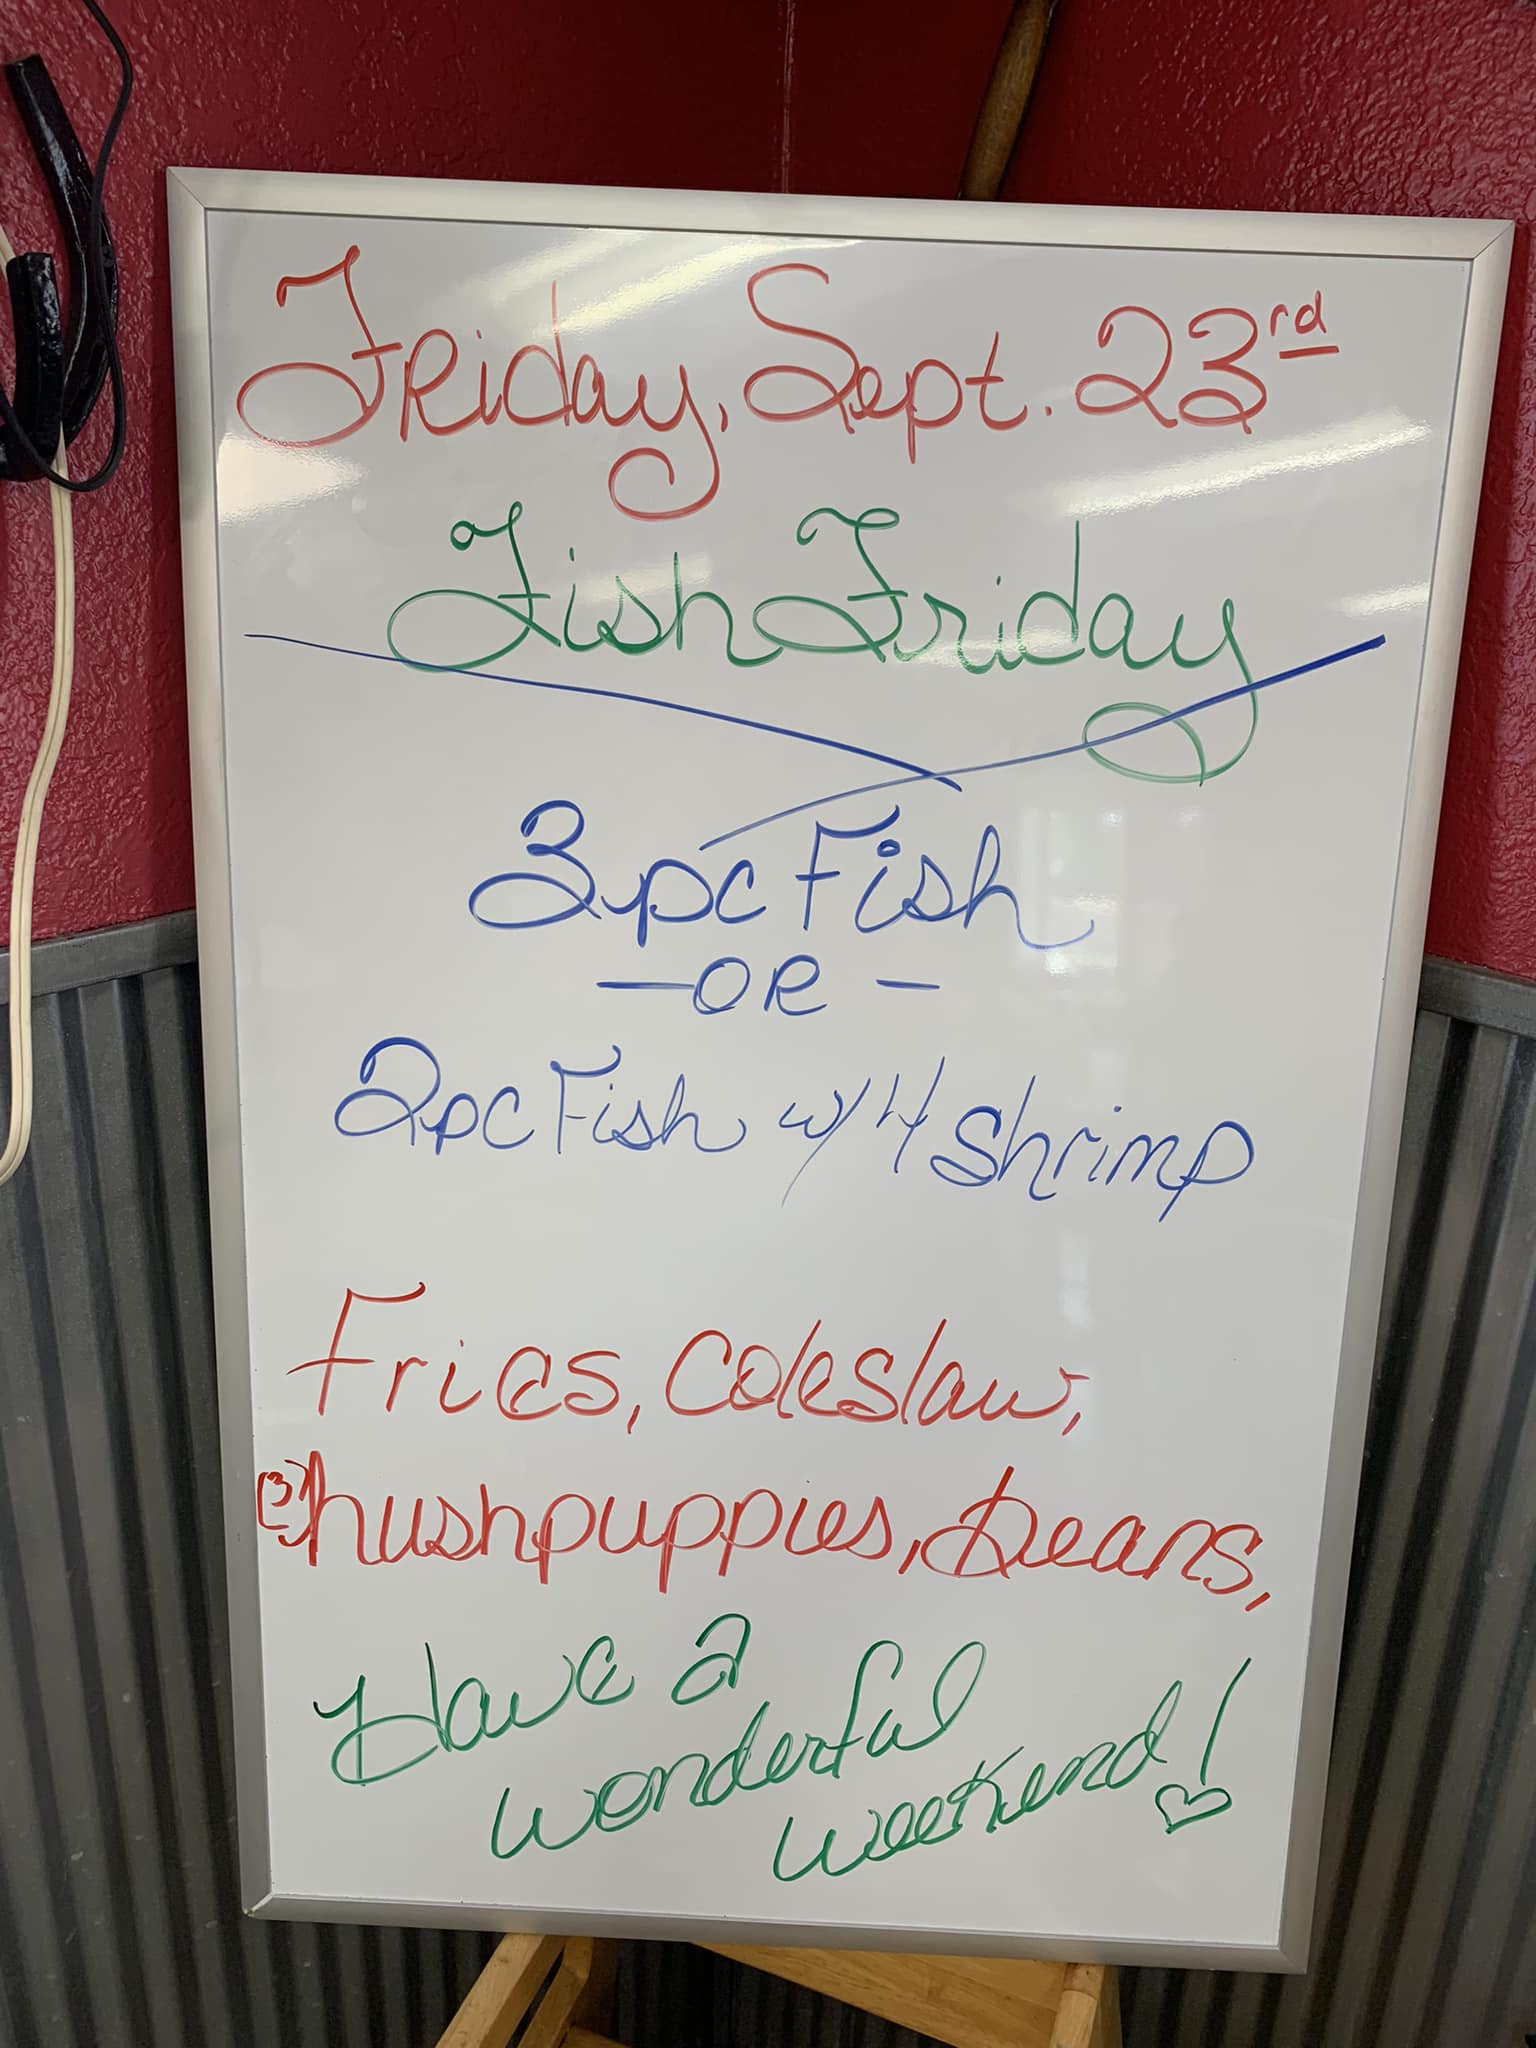 Friday, Sept. 23rd
Fish Friday
3pc Fish
- OR -
2pc Fish w/ 4 Shrimp
Fries, Coleslaw,
(3) hushpuppies, beans,
Have a
wonderful
weekend!